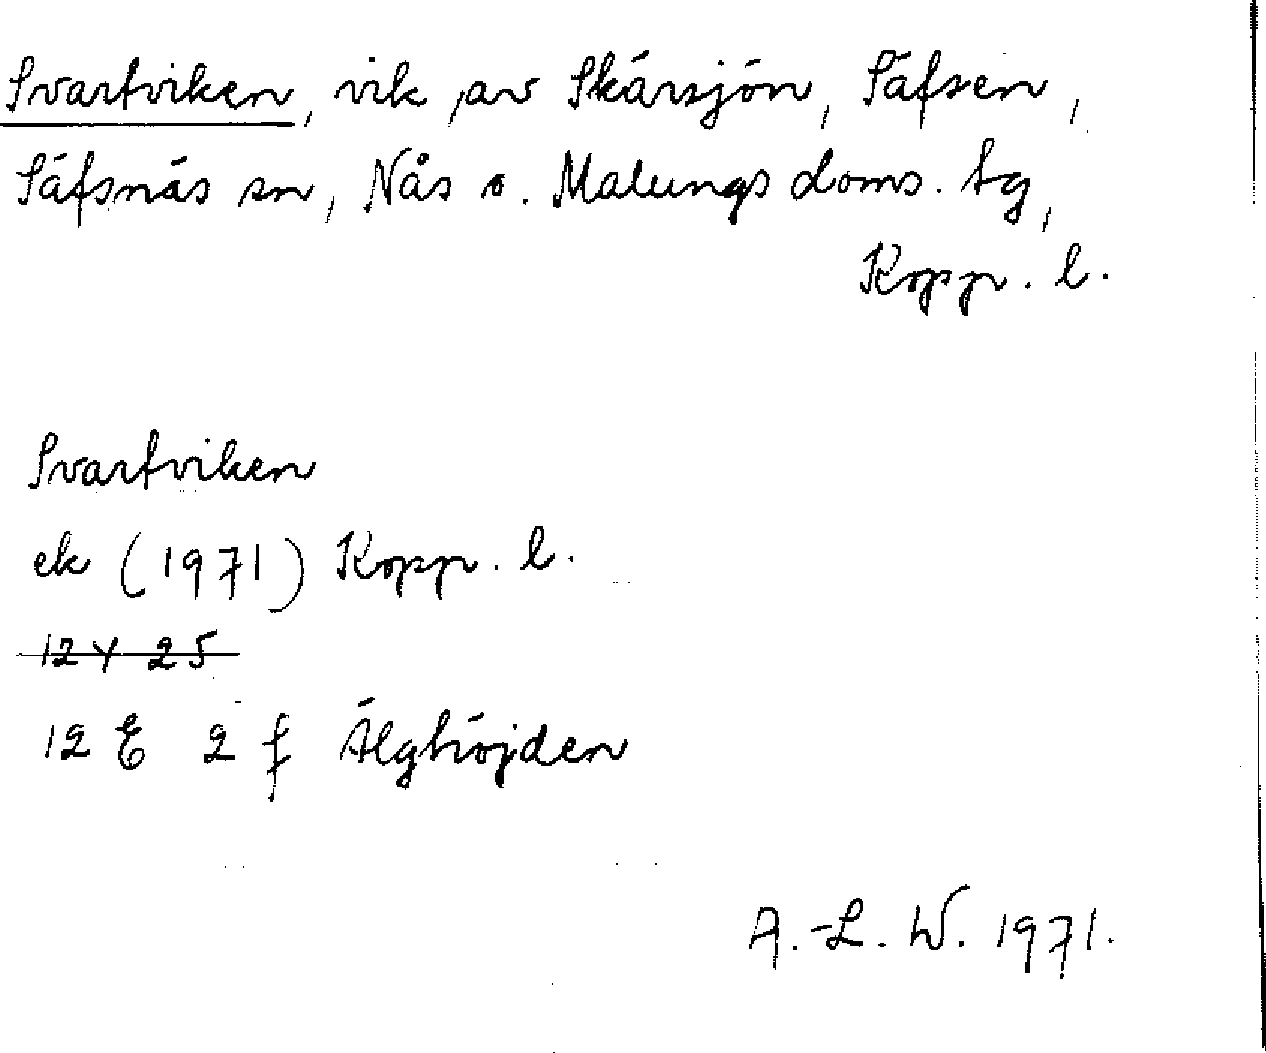 Svartviken, vik av Skärsjön, Säfsen,
Säfsnäs sn, Nås o. Malungs doms. tg,
Kopp. l.
Svartviken
ek (1971) Kopp. l.
12 Y 25
12 E 2 f Älghöjden
A.-L. W. 1971.